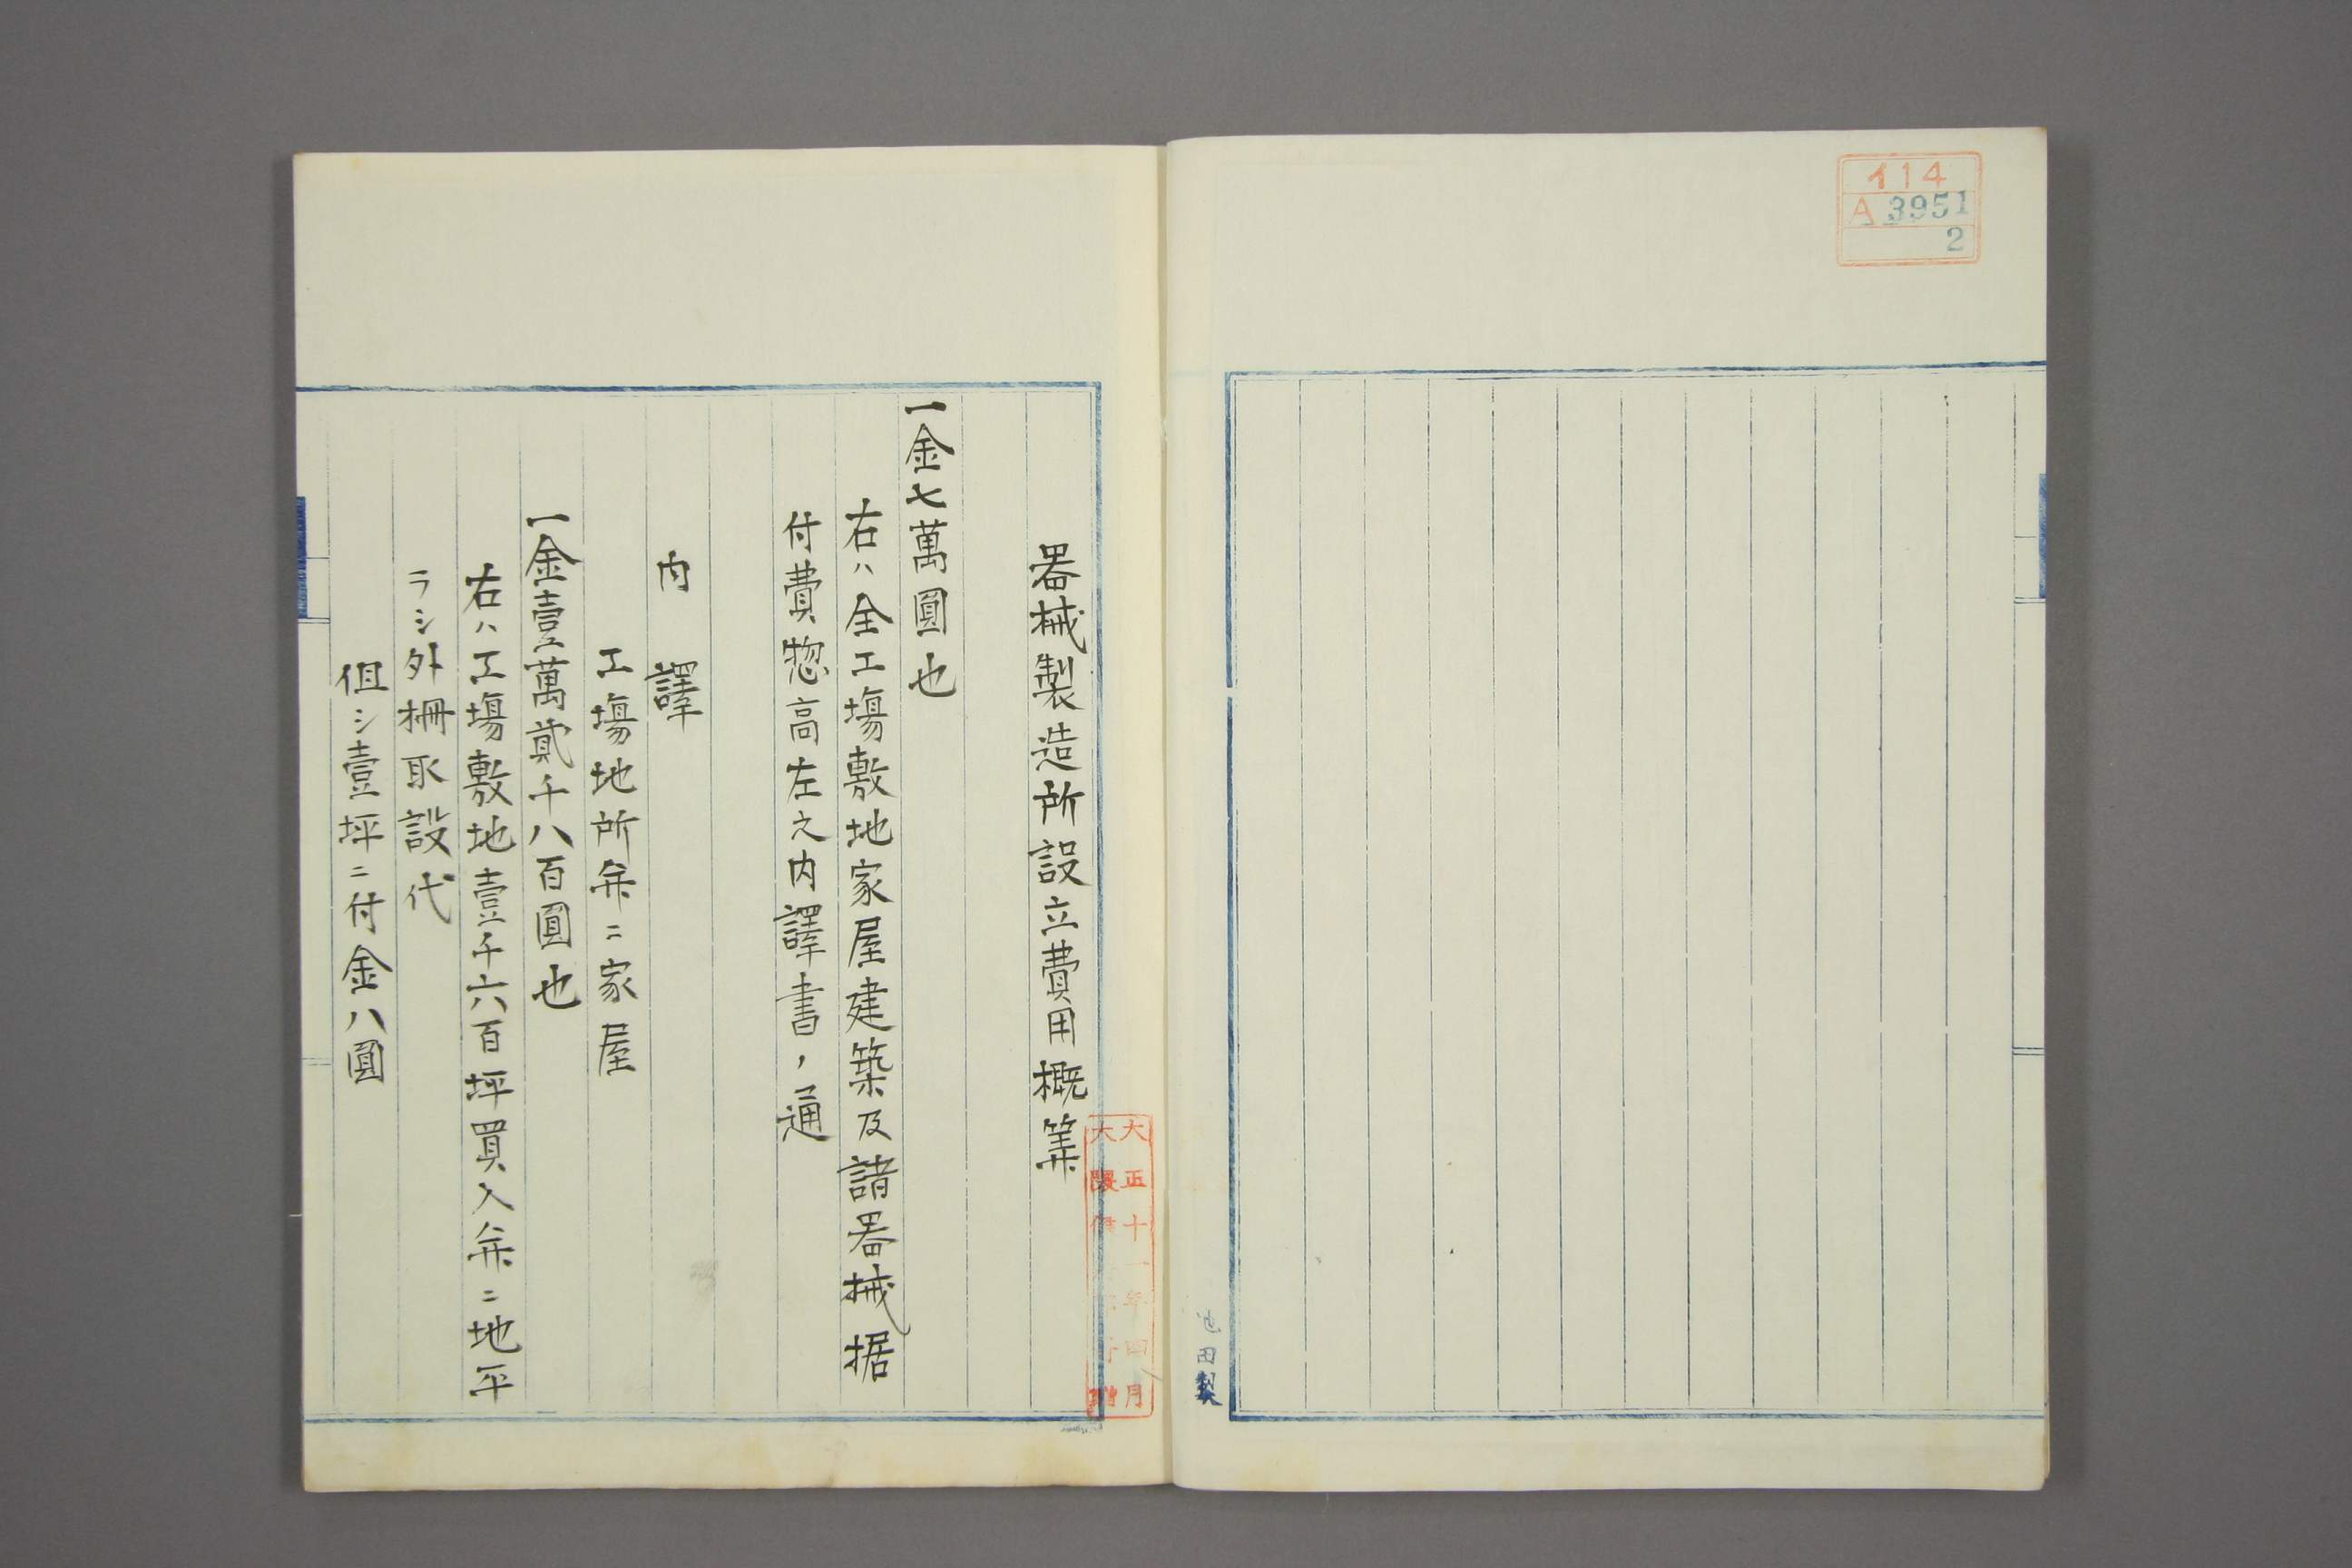 イ14
A 3951
2
池田製
大正十一年四月
大隈
贈
器械製造所設立費用概筭
一金七萬圓也
右ハ全工塲敷地家屋建築及諸器械据
付費惣高左之内譯書ノ通
内譯
工塲地所并ニ家屋
一金壹萬貳千八百圓也
右ハ工塲敷地壹千六百坪買入并ニ地平
ラシ外柵取設代
但シ壹坪ニ付金八圓